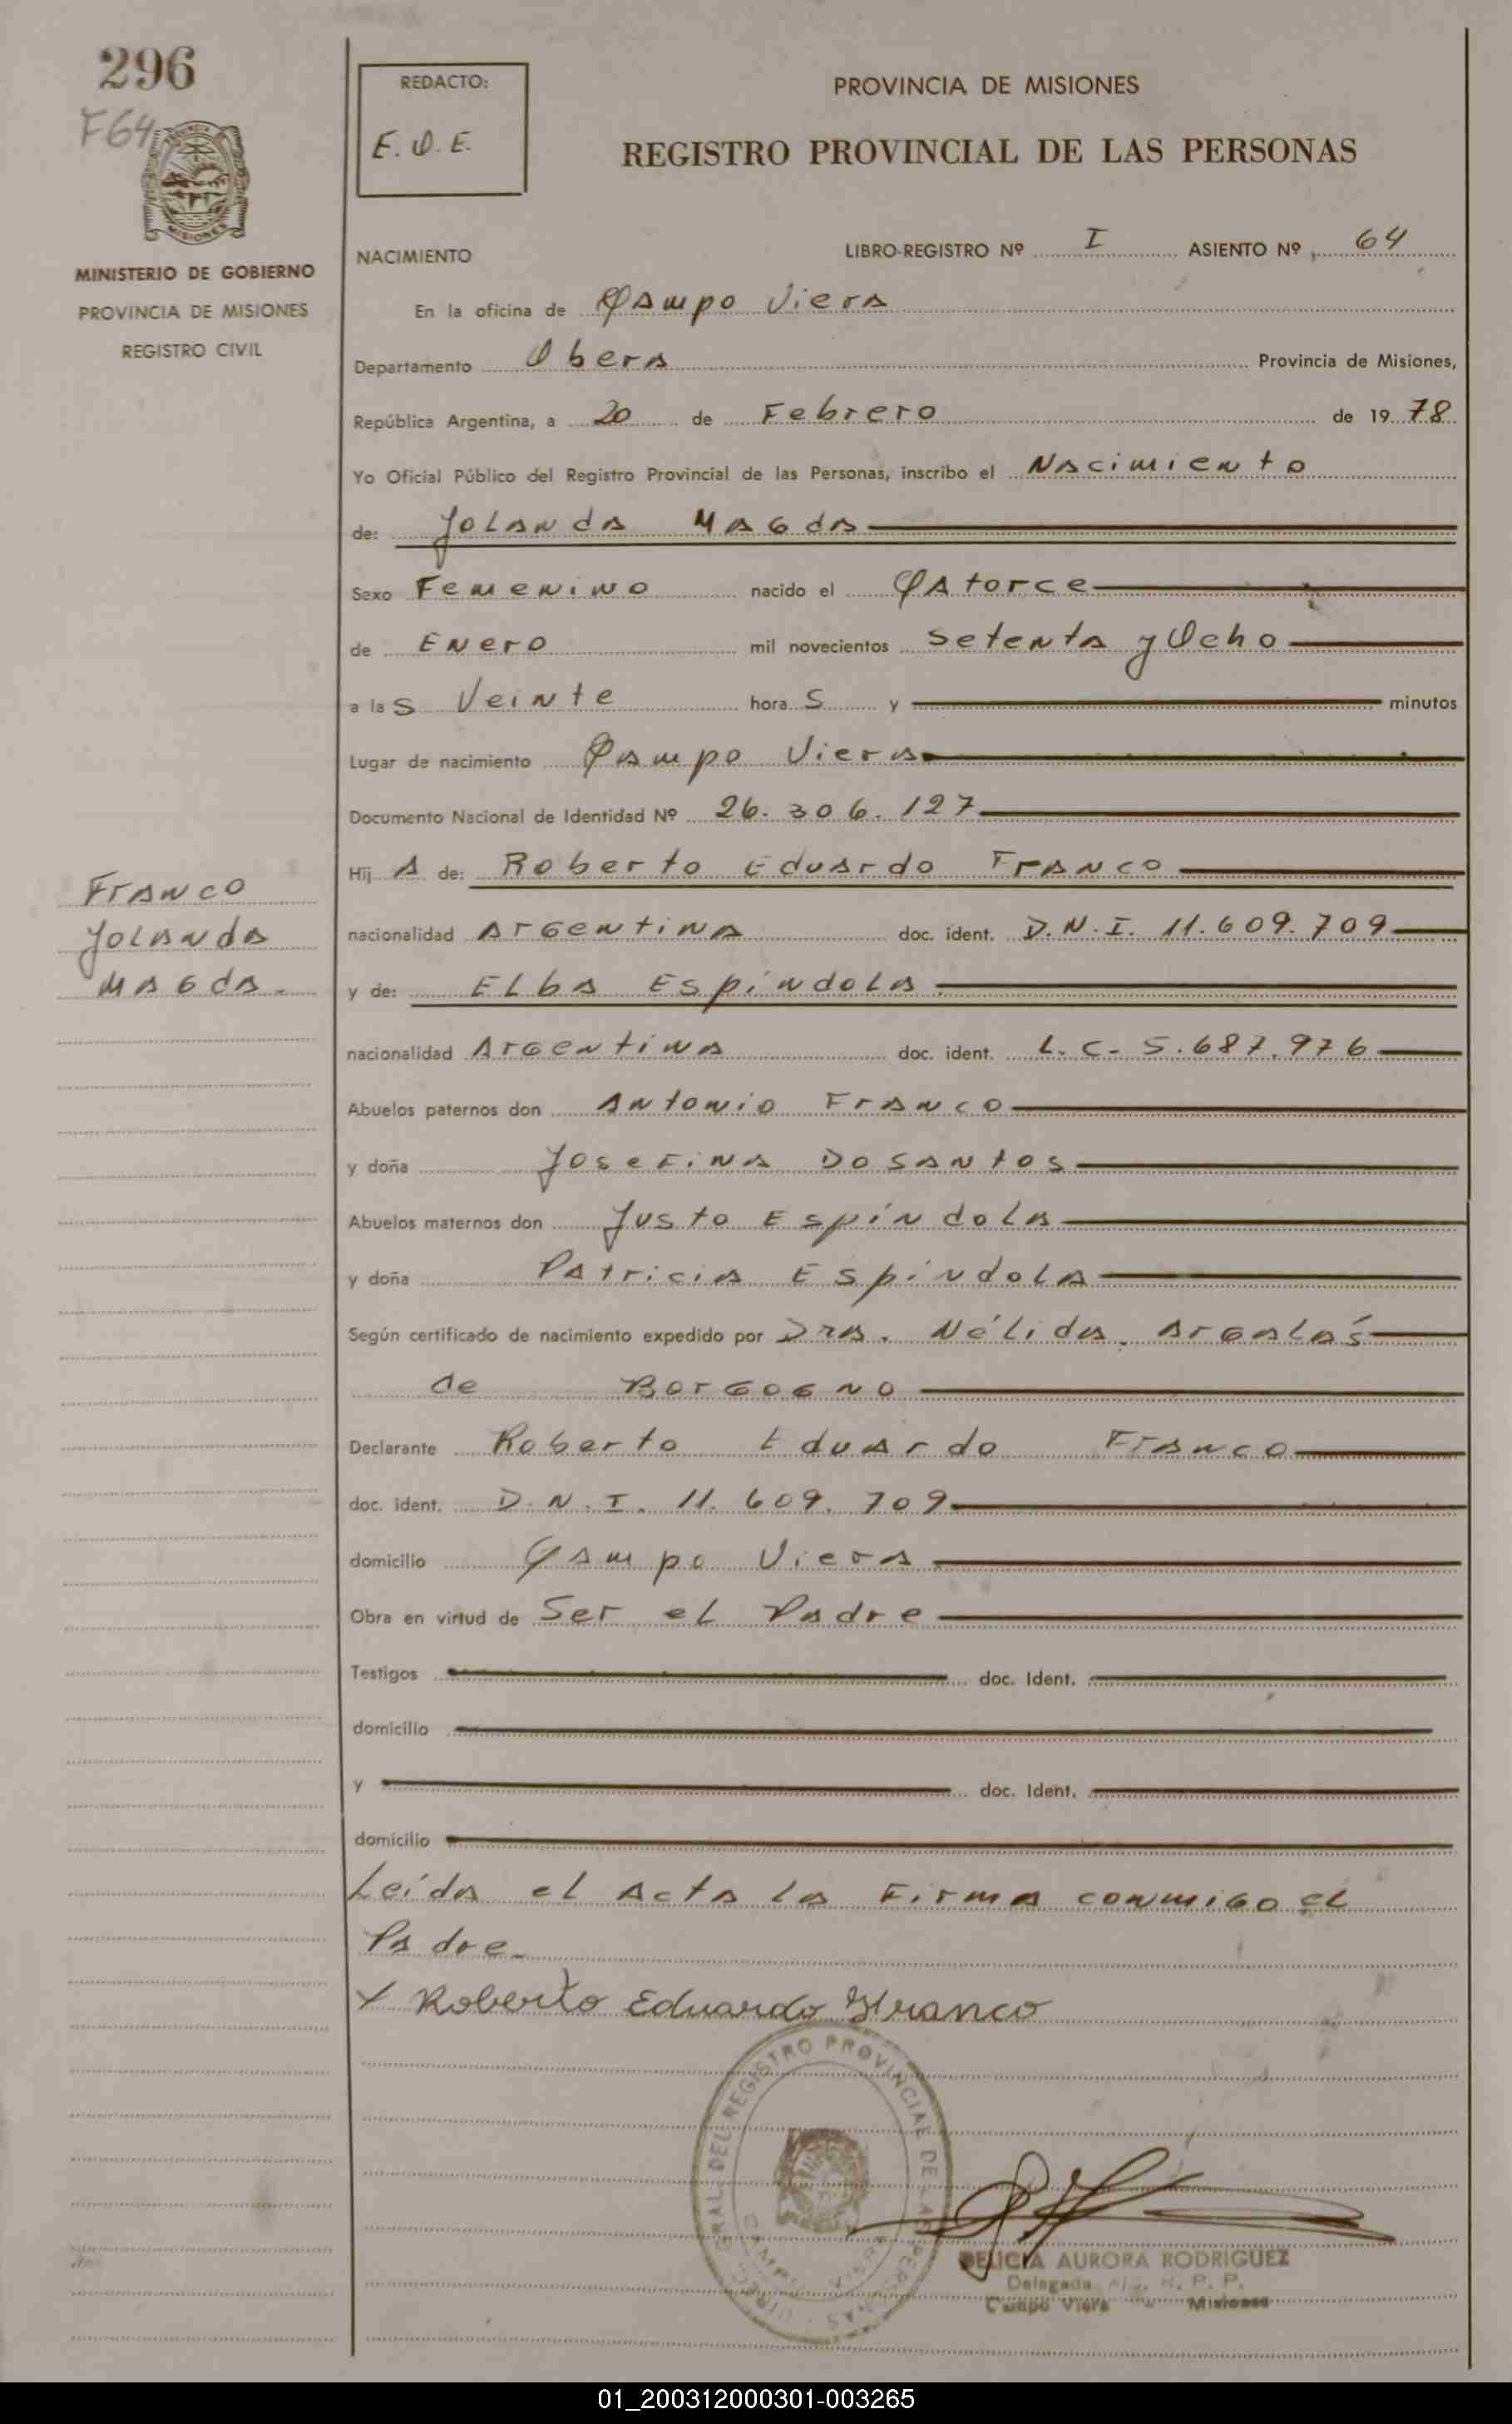 296
F64
MISIONES
MINISTERIO DE GOBIERNO
PROVINCIA DE MISIONES
REGISTRO CIVIL
REDACTO:
E. O. E.
PROVINCIA DE MISIONES
REGISTRO PROVINCIAL DE LAS PERSONAS
NACIMIENTO
LIBRO-REGISTRO Nº I ASIENTO Nº 64
En la oficina de Campo Viera
Departamento Obera Provincia de Misiones,
República Argentina, a 20 de Febrero de 1978
Yo Oficial Público del Registro Provincial de las Personas, inscribo el Nacimiento
de: Yolanda Magda
Sexo Femenino nacido el Catorce
de Enero mil novecientos Setenta y Ocho
a las Veinte horas y minutos
Lugar de nacimiento Campo Viera
Documento Nacional de Identidad Nº 26.306.127
Hija de: Roberto Eduardo Franco
nacionalidad Argentina doc. ident. D.N.I. 11.609.709
y de: Elba Espíndola
nacionalidad Argentina doc. ident. L.C. 5.687.976
Abuelos paternos don Antonio Franco
y doña Josefina Dosantos
Abuelos maternos don Justo Espíndola
y doña Patricia Espíndola
Según certificado de nacimiento expedido por Dra. Nélida Argalas
de Borgogno
Declarante Roberto Eduardo Franco
doc. ident. D.N.I. 11.609.709
domicilio Campo Viera
Obra en virtud de Ser el Padre
Testigos doc. Ident.
domicilio
y doc. Ident.
domicilio
Leída el Acta la Firma conmigo el
Padre.
X Roberto Eduardo Franco
Franco
Yolanda
Magda.
DIREC. GRAL. DEL REGISTRO PROVINCIAL DE LAS PERSONAS
CAMPO VIERA
FELICIA AURORA RODRIGUEZ
Delegada R. P. P.
Campo Viera Misiones
01_200312000301-003265